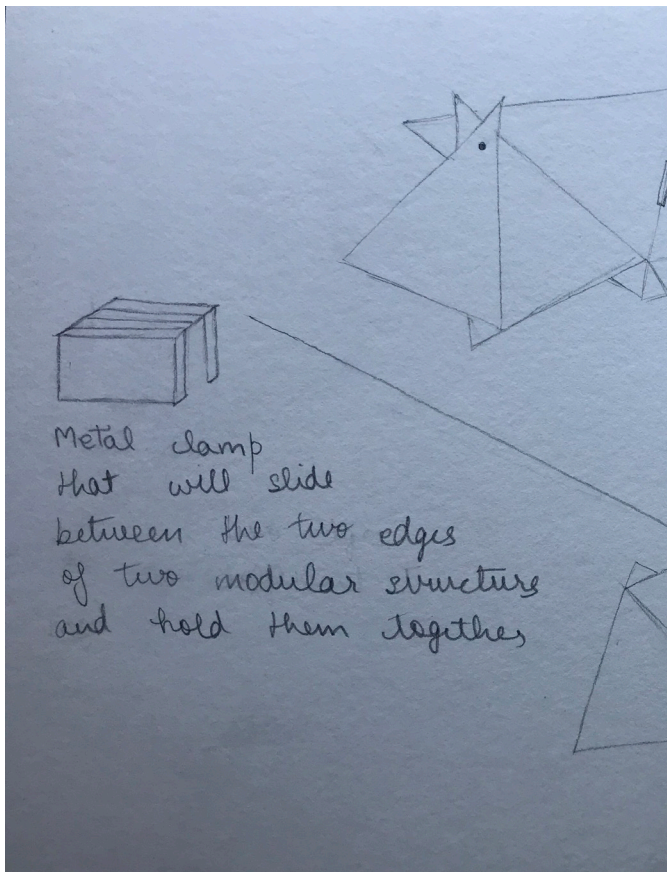 Metal clamp
that will slide
between the two edges
of two modular structure
and hold them together